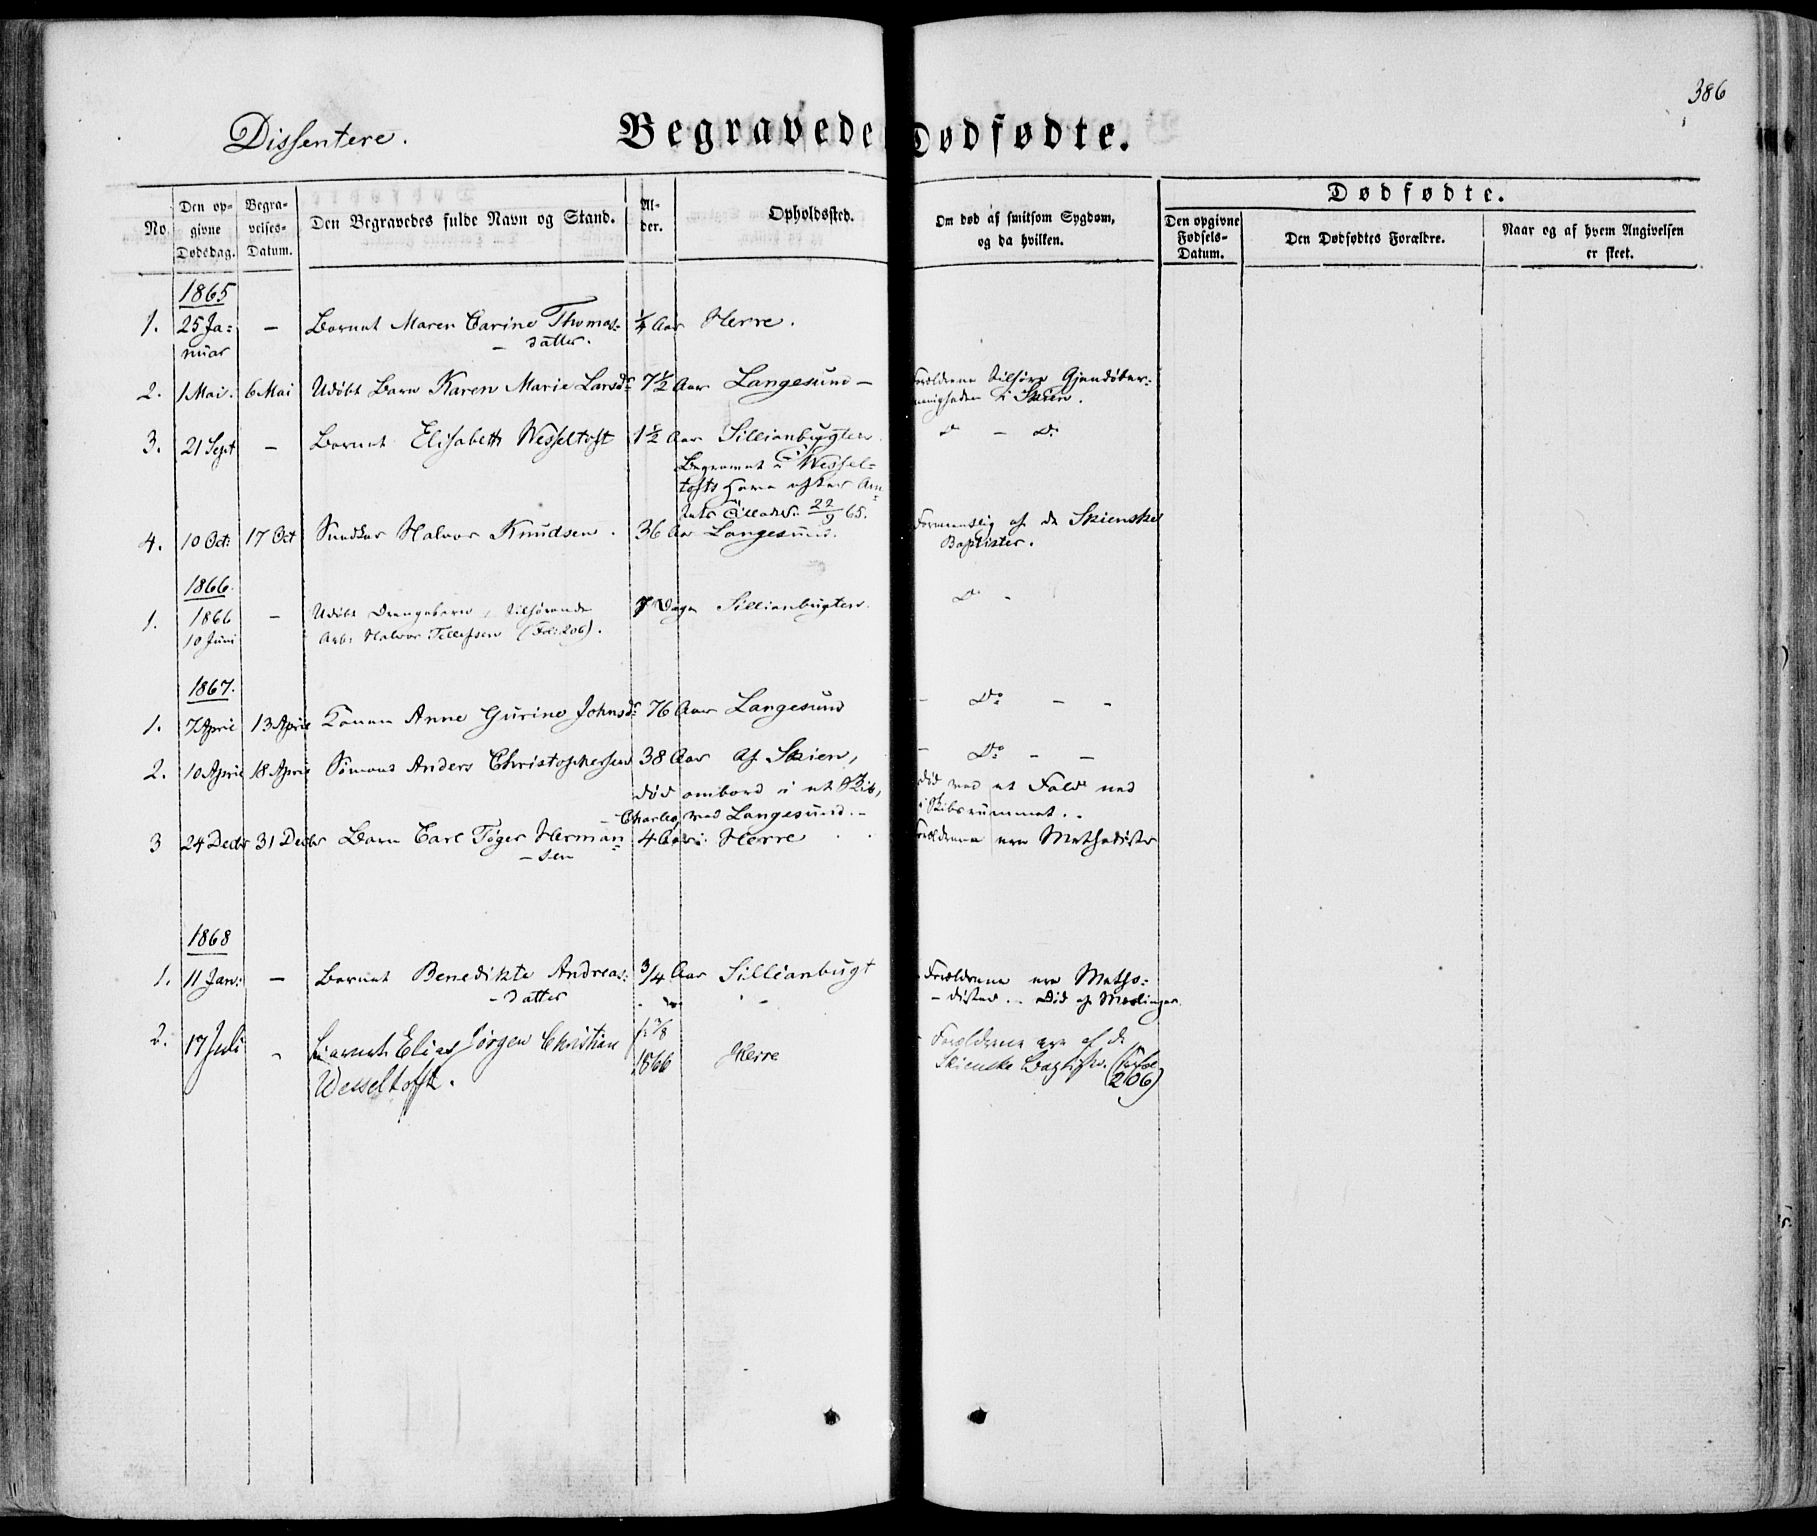 386
Dissentere.
Begravede
Dødfødte.
Dødfødte.
No.
Den op-
givne
Dødsdag.
Begra-
velses-
Datum.
Den Begravedes fulde Navn og Stand.
Al-
der.
Opholdssted.
Om død af smitsom Sygdom,
og da hvilken.
Den opgivne
Fødsels-
Datum.
Den Dødfødtes Forældre.
Naar og af hvem Angivelsen
er skeet.
1865
1. 25 Ja= – Barnet Maren Carine Thomas= ¼ Aar Herre.
nuar – datter.
2. 1 Mai. 6 Mai Udøbt Barn Karen Marie Larsdr 7½ Aar Langesund – Forældrene tilhøre Gjendøber=
menigheden i Skien.
3. 21 Sept – Barnet Elisabeth Wesseltoft 1½ Aar Sillianbugten. d – Do
Begravet i Wessel=
tofts Have efter Am=
22/9 65.
4. 10 Oct: 17 Oct Halvor Knudsen. 36 Aar Langesund. Formentlig af de Skienske
Baptister.
1866.
1. 1866 – Udøbt Drengebarn, tilhørende 7 Dage Sillianbugten. Do –
10 Juni Arb: Halvor Tellefsen (Fol: 206).
1867.
1. 7 April 13 April Konen Anne Gurine Johnsdr 76 Aar Langesund – Do – –
2. 10 April 18 April Sømand Anders Christophersen 38 Aar Af Skien, – Do – –
død ombord i et Skib, død ved et Fald ned
Charles, ved Langesund. – i Skibsrummet. .
3 24 Decbr 31 Decbr Barn Carl Tøger Herman= 4 Aar Herre Forældrene ere Methodister
– sen
1868
1. 11 Jan: – Barnet Benedikte Andreas= ¾ Aar Sillianbugt – Forældrene ere Metho=
– datter – – dister. – Død af Meslinger.
2. 17 Juli – Barnet Elias Jørgen Christian f. 3/8 Herre – Forældrene ere af de
Wesseltoft. 1866 Skienske Baptister. (
206)